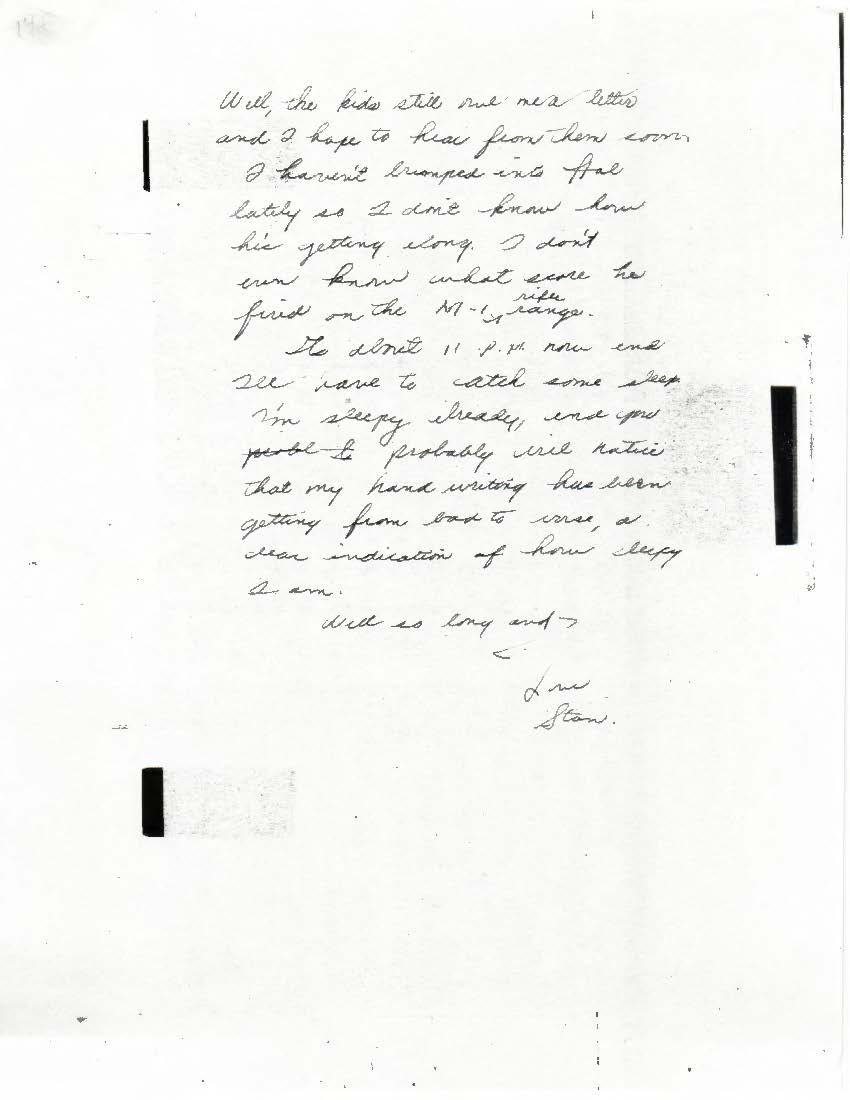 Well, the kids still owe me a letter
and I hope to hear from them soon.
I haven't bumped into Hal
lately so I don't know how
his getting along. I don't
even know what score he
fired on the M-1 rifle range.
Its about 11 P.M. now and
I'll have to catch some sleep
I'm sleepy already, and you
probably will notice
that my hand writing has been
getting from bad to worse, a
clear indication of how sleepy
I am.
Well so long and
Love
Stan.